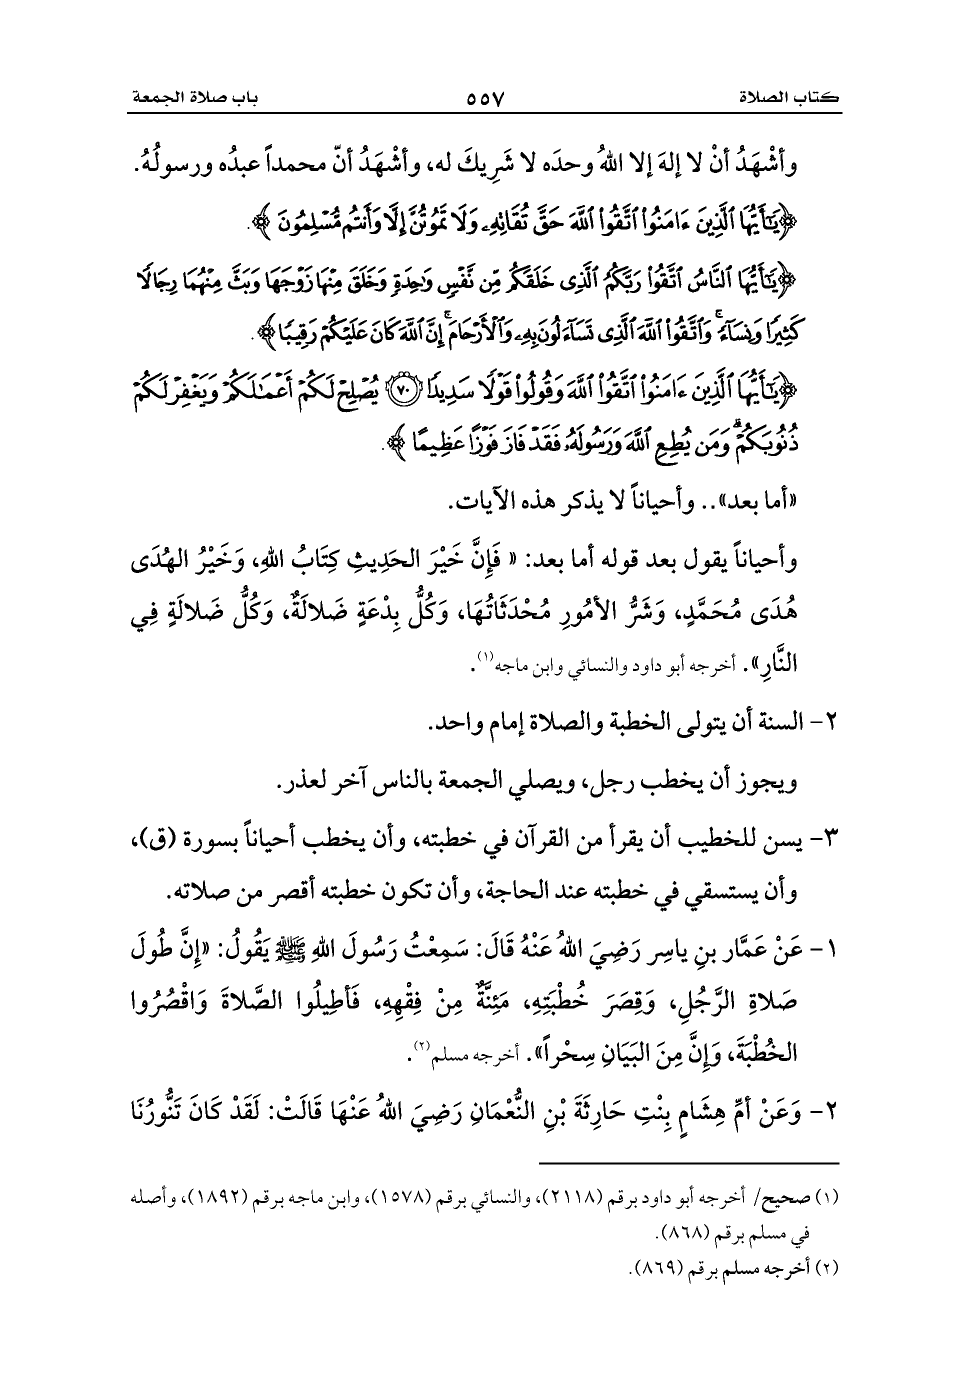 كتاب الصلاة ٥٥٧ باب صلاة الجمعة
وأشْهَدُ أنْ لا إلهَ إلا اللهُ وحدَه لا شَرِيكَ له، وأشْهَدُ أنّ محمداً عبدُه ورسولُهُ.
﴿يَٰٓأَيُّهَا ٱلَّذِينَ ءَامَنُوا۟ ٱتَّقُوا۟ ٱللَّهَ حَقَّ تُقَاتِهِۦ وَلَا تَمُوتُنَّ إِلَّا وَأَنتُم مُّسْلِمُونَ﴾.
﴿يَٰٓأَيُّهَا ٱلنَّاسُ ٱتَّقُوا۟ رَبَّكُمُ ٱلَّذِى خَلَقَكُم مِّن نَّفْسٍ وَٰحِدَةٍ وَخَلَقَ مِنْهَا زَوْجَهَا وَبَثَّ مِنْهُمَا رِجَالًا
كَثِيرًا وَنِسَآءً ۚ وَٱتَّقُوا۟ ٱللَّهَ ٱلَّذِى تَسَآءَلُونَ بِهِۦ وَٱلْأَرْحَامَ ۚ إِنَّ ٱللَّهَ كَانَ عَلَيْكُمْ رَقِيبًا﴾.
﴿يَٰٓأَيُّهَا ٱلَّذِينَ ءَامَنُوا۟ ٱتَّقُوا۟ ٱللَّهَ وَقُولُوا۟ قَوْلًا سَدِيدًا ٧٠ يُصْلِحْ لَكُمْ أَعْمَٰلَكُمْ وَيَغْفِرْ لَكُمْ
ذُنُوبَكُمْ ۗ وَمَن يُطِعِ ٱللَّهَ وَرَسُولَهُۥ فَقَدْ فَازَ فَوْزًا عَظِيمًا﴾.
«أما بعد».. وأحياناً لا يذكر هذه الآيات.
وأحياناً يقول بعد قوله أما بعد: « فَإنَّ خَيْرَ الحَدِيثِ كِتَابُ اللهِ، وَخَيْرُ الهُدَى
هُدَى مُحَمَّدٍ، وَشَرُّ الأمُورِ مُحْدَثَاتُهَا، وَكُلُّ بِدْعَةٍ ضَلالَةٌ، وَكُلُّ ضَلالَةٍ فِي
النَّارِ». أخرجه أبو داود والنسائي وابن ماجه(١).
٢- السنة أن يتولى الخطبة والصلاة إمام واحد.
ويجوز أن يخطب رجل، ويصلي الجمعة بالناس آخر لعذر.
٣- يسن للخطيب أن يقرأ من القرآن في خطبته، وأن يخطب أحياناً بسورة (ق)،
وأن يستسقي في خطبته عند الحاجة، وأن تكون خطبته أقصر من صلاته.
١- عَنْ عَمَّار بنِ ياسِر رَضِيَ اللهُ عَنْهُ قَالَ: سَمِعْتُ رَسُولَ اللهِ ﷺ يَقُولُ: «إنَّ طُولَ
صَلاةِ الرَّجُلِ، وَقِصَرَ خُطْبَتِهِ، مَئِنَّةٌ مِنْ فِقْهِهِ، فَأطِيلُوا الصَّلاةَ وَاقْصُرُوا
الخُطْبَةَ، وَإنَّ مِنَ البَيَانِ سِحْراً». أخرجه مسلم(٢).
٢- وَعَنْ أمِّ هِشَامٍ بِنْتِ حَارِثَةَ بْنِ النُّعْمَانِ رَضِيَ اللهُ عَنْهَا قَالَتْ: لَقَدْ كَانَ تَنُّورُنَا
(١) صحيح/ أخرجه أبو داود برقم (٢١١٨)، والنسائي برقم (١٥٧٨)، وابن ماجه برقم (١٨٩٢)، وأصله
في مسلم برقم (٨٦٨).
(٢) أخرجه مسلم برقم (٨٦٩).